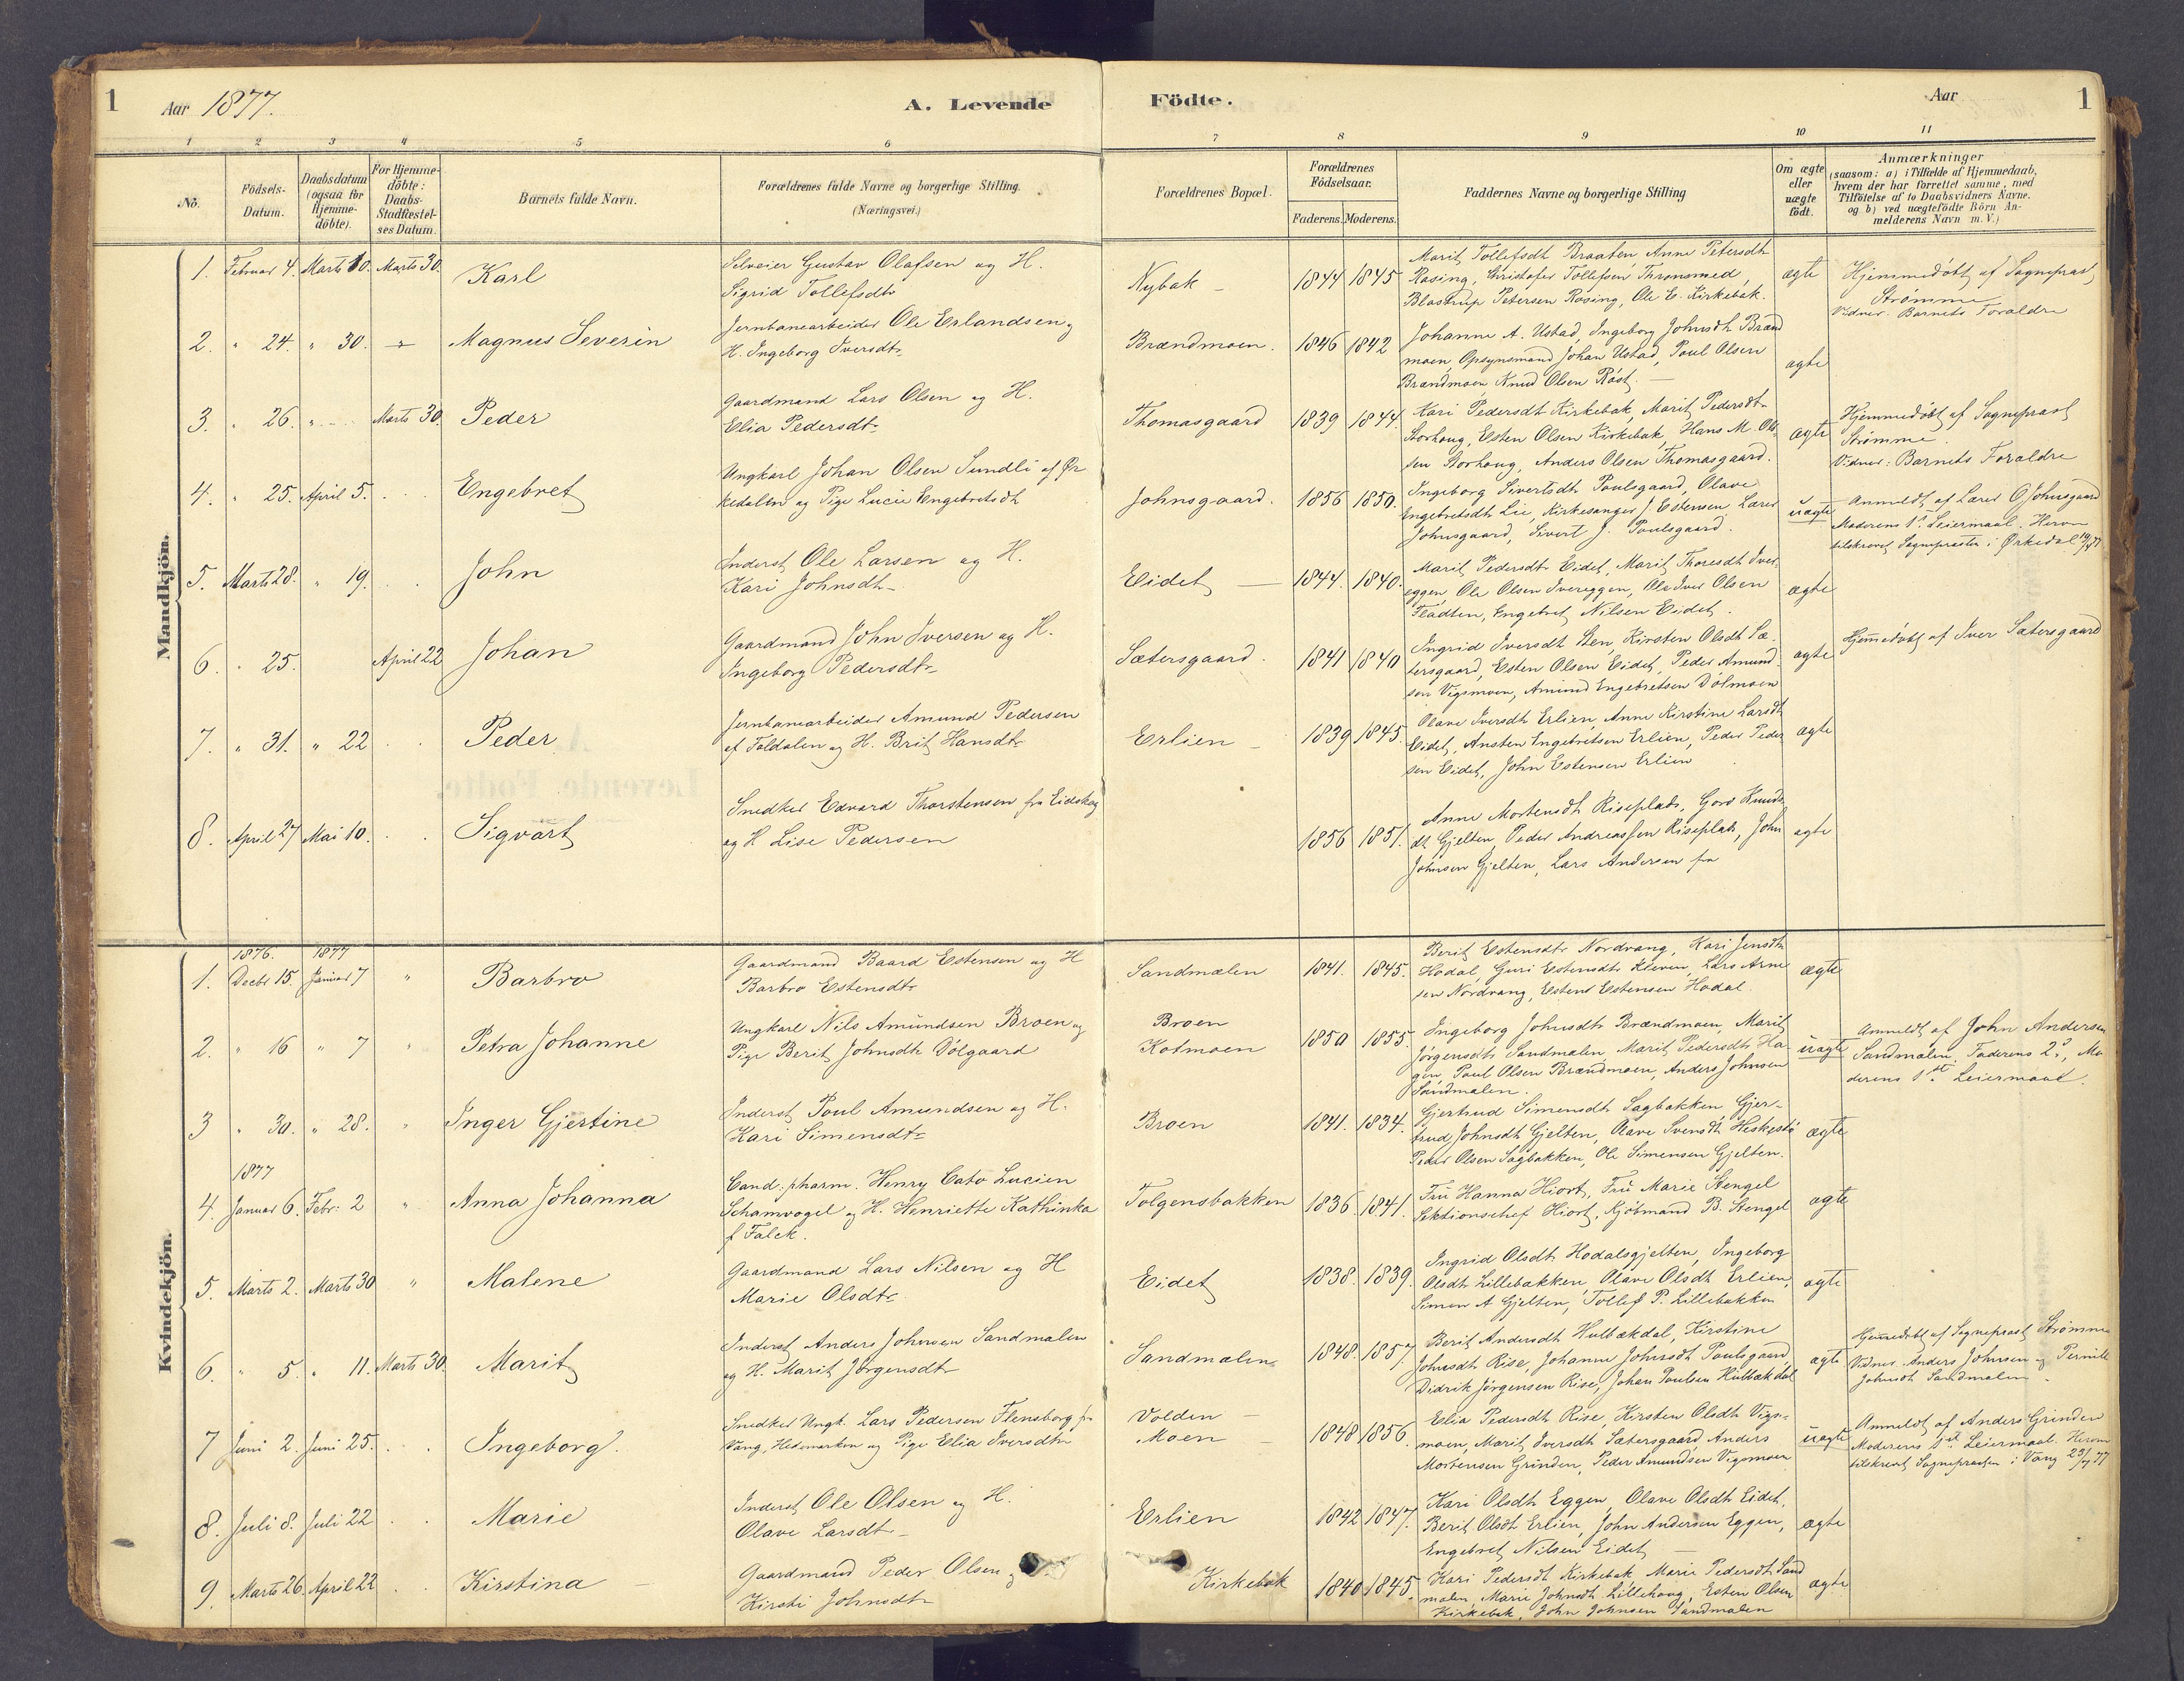 1 Aar 1877. A. Levende Födte. Aar 1
1 2 3 4 5 6 7 8 9 10 11
No. Födsels-Datum. Daabsdatum (ogsaa for Hjemme-döbte). For Hjemme-döbte: Daabs-Stadfæstel-ses Datum. Barnets fulde Navn. Forældrenes fulde Navne og borgerlige Stilling. (Næringsvei.) Forældrenes Bopæl. Forældrenes Födselsaar. Faderens. Moderens. Faddernes Navne og borgerlige Stilling Om ægte eller uægte födt. Anmærkninger (saasom: a) i Tilfælde af Hjemmedaab, hvem der har forrettet samme, med Tilföielse af to Daabsvidners Navne. og b) ved uægtefödte Börn An-melderens Navn m.V.)
Mandkjön.
1. Februar 4. Marts 10. Marts 30. Karl
Gustav Olafsen og H.
Sigrid Tollefsdtr
Nybak - 1844 1845
Marit Tollefsdt Braaten Anne Petersdt
Rosing, Christofer Tollefsen
Petersen Rosing, Ole E. Kirkebak.
ægte
Hjemmedöbt af Sogneprest
Strömme
Vidner. Barnets Forældre
2. " 24. " 30. Magnus Severin
Jernbanearbeider Ole Erlandsen og
H. Ingeborg Iversdtr
Brændmoen. 1846 1842
Johanne A. Ustad, Ingeborg Johnsdt Brænd
moen, Opsynsmand Johan Ustad, Poul Olsen
Brændmoen Knud Olsen Röst. -
ægte
3. " 26. " Marts 30. Peder
Gaardmand Lars Olsen og H.
Elia Pedersdtr
Thomasgaard 1839 1844.
Kari Pedersdt Kirkebak, Marit Pedersdt
Storhoug, Esten Olsen Kirkebak, Hans M. Ol
sen Storhoug, Anders Olsen Thomasgaard.
ægte
Hjemmedöbt af Sogneprest
Strömme.
Vidner: Barnets Forældre
4. " 25. April 5. Engebret
Ungkarl Johan Olsen Sundli af Ör
kedalen og Pige Lucie Engebretsdt
Johnsgaard. 1856 1850.
Ingeborg Sivertsdt Poulsgaard, Olave
Engebretsdt Lie, Kirkesanger J Estensen, Lærer
Johnsgaard, Sivert J. Poulsgaard.
uægte
Anmeldt af Lærer O Johnsgaard
Moderens 1ste Leiermaal. Herom
tilskrevet Sognepresten i Örkedal
5. Marts 28. " 19. John
Inderst Ole Larsen og H.
Kari Johnsdt
Eidet - 1844. 1840.
Marit Pedersdt Eidet, Marit Thoresdt Iver
eggen, Ole Olsen Ivereggen, Ole Iver Olsen
Engebret Nilsen Eidet.
ægte
6. " 25. April 22 Johan
Gaardmand John Iversen og H.
Ingeborg Pedersdtr
Sætersgaard. 1841 1840
Ingrid Iversdt Sten, Kirsten Olsdt Sæ
tersgaard, Esten Olsen Eidet, Peder Amund
sen Vigsmoen, Amund Engebretsen Dölmoen
ægte
Hjemmedöbt af Iver Sætersgaard
7. " 31. " 22 Peder
Jernbanearbeider Amund Pedersen
af Foldalen og H. Brit Hansdtr
Erlien - 1839 1845.
Olave Iversdt Erlien, Anne Kirstine Larsdt
Eidet, Ansten Engebretsen Erlien, Peder Peder
sen Eidet, John Estensen Erlien
ægte
8. April 27 Mai 10. Sigvart
Snedker Edvard Thorstensen fra Eidskog
og H Lise Pedersen
1856 1851.
Anne Mortensdt Riseplads, Goro Knuds
dt Gjelten, Peder Andreassen Riseplads, John
Johnsen Gjelten, Lars Andersen fra
ægte
Kvindekjön.
1876. 1877
1. Decbr 15. Januar 7 " Barbro
Gaardmand Baard Estensen og H
Barbro Estensdtr
Sandmælen 1841. 1845.
Berit Estensdtr Nordvang, Kari Jensdt
Hodal, Guri Estensdtr Kleven, Lars Arne
sen Nordvang, Esten Estensen Hodal.
ægte
2. " 16 " 7 " Petra Johanne
Ungkarl Nils Amundsen Broen og
Pige Berit Johnsdtr Dölgaard
Broen
Kotmoen 1850 1855.
Ingeborg Johnsdt Brændmoen, Marit
Jörgensdt Sandmælen, Marit Pedersdt Ha
gen Poul Olsen Brændmoen, Anders Johnsen
Sandmælen.
uægte
Anmeldt af John Andersen
Sandmælen. Faderens 2., Mo
derens 1ste Leiermaal.
3 " 30. " 28. " Inger Gjertine
Inderst Poul Amundsen og H.
Kari Simensdtr
Broen 1841. 1834.
Gjertrud Simensdt Sagbakken, Gjer-
trud Johnsdt Gjelten, Olave Svensdt
Peder Olsen Sagbakken, Ole Simensen Gjelten.
ægte
1877
4. Januar 6. Febr: 2 " Anna Johanna
Cand. pharm. Henry Cato Lucien
Schamvogel og H. Henriette Kathinka
f Falck.
Tolgensbakken 1836. 1841.
Fru Hanna Hiort, Fru Marie Stengel
Sektionschef Hiort, Kjöbmand B. Stengel
ægte
5. Marts 2. Marts 30 " Malene
Gaardmand Lars Nilsen og H
Marie Olsdtr
Eidet 1838. 1839.
Ingrid Olsdt Hodalsgjelten, Ingeborg
Olsdt Lillebakken, Olave Olsdt Erlien,
Simen A Gjelten, Tollef P. Lillebakken
ægte
6. " 5. " 11. Marts 30. Marit
Inderst Anders Johnsen Sandmælen
og H. Marit Jörgensdt
Sandmælen 1848. 1857.
Berit Andersdt Hulbækdal, Kirstine
Johnsdt Rise, Johanne Johnsdt Poulsgaard,
Didrik Jörgensen Rise, Johan Poulsen Hulbækdal
ægte
Hjemmedöbt af Sogneprest Strömme
Vidner. Anders Johnsen og Pernille
Johnsdt Sandmælen.
7 Juni 2. Juni 25. Ingeborg.
Snedker Ungk. Lars Pedersen Flensborg fr
Vang, Hedemarken og Pige Elia Iversdtr
Volden -
Moen - 1848 1856.
Elia Pedersdt Rise, Kirsten Olsdt Vigs-
moen, Marit Iversdt Sætersgaard Anders
Mortensen Grinden, Peder Amundsen Vigsmoen
uægte
Anmeldt af Anders Grinden
Moderens 1ste Leiermaal. Herom
tilskrevet Sognepresten i Vang
8. Juli 8. Juli 22 Marie
Inderst Ole Olsen og H.
Olave Larsdt
Erlien 1842 1847.
Kari Olsdt Eggen, Olave Olsdt Eidet,
Berit Olsdt Erlien, John Andersen Eggen,
Engebret Nilsen Eidet -
ægte
9. Marts 26 April 22 Kirstina -
Gaardmand Peder Olsen og
Kirsti Johnsdt
Kirkebak 1840 1845.
Kari Pedersdt Kirkebak Marie Pedersdt Sand
mælen, Marie Johnsdt Lillehoug, Esten Olsen
Kirkebak, John Johnsen Sandmælen
ægte